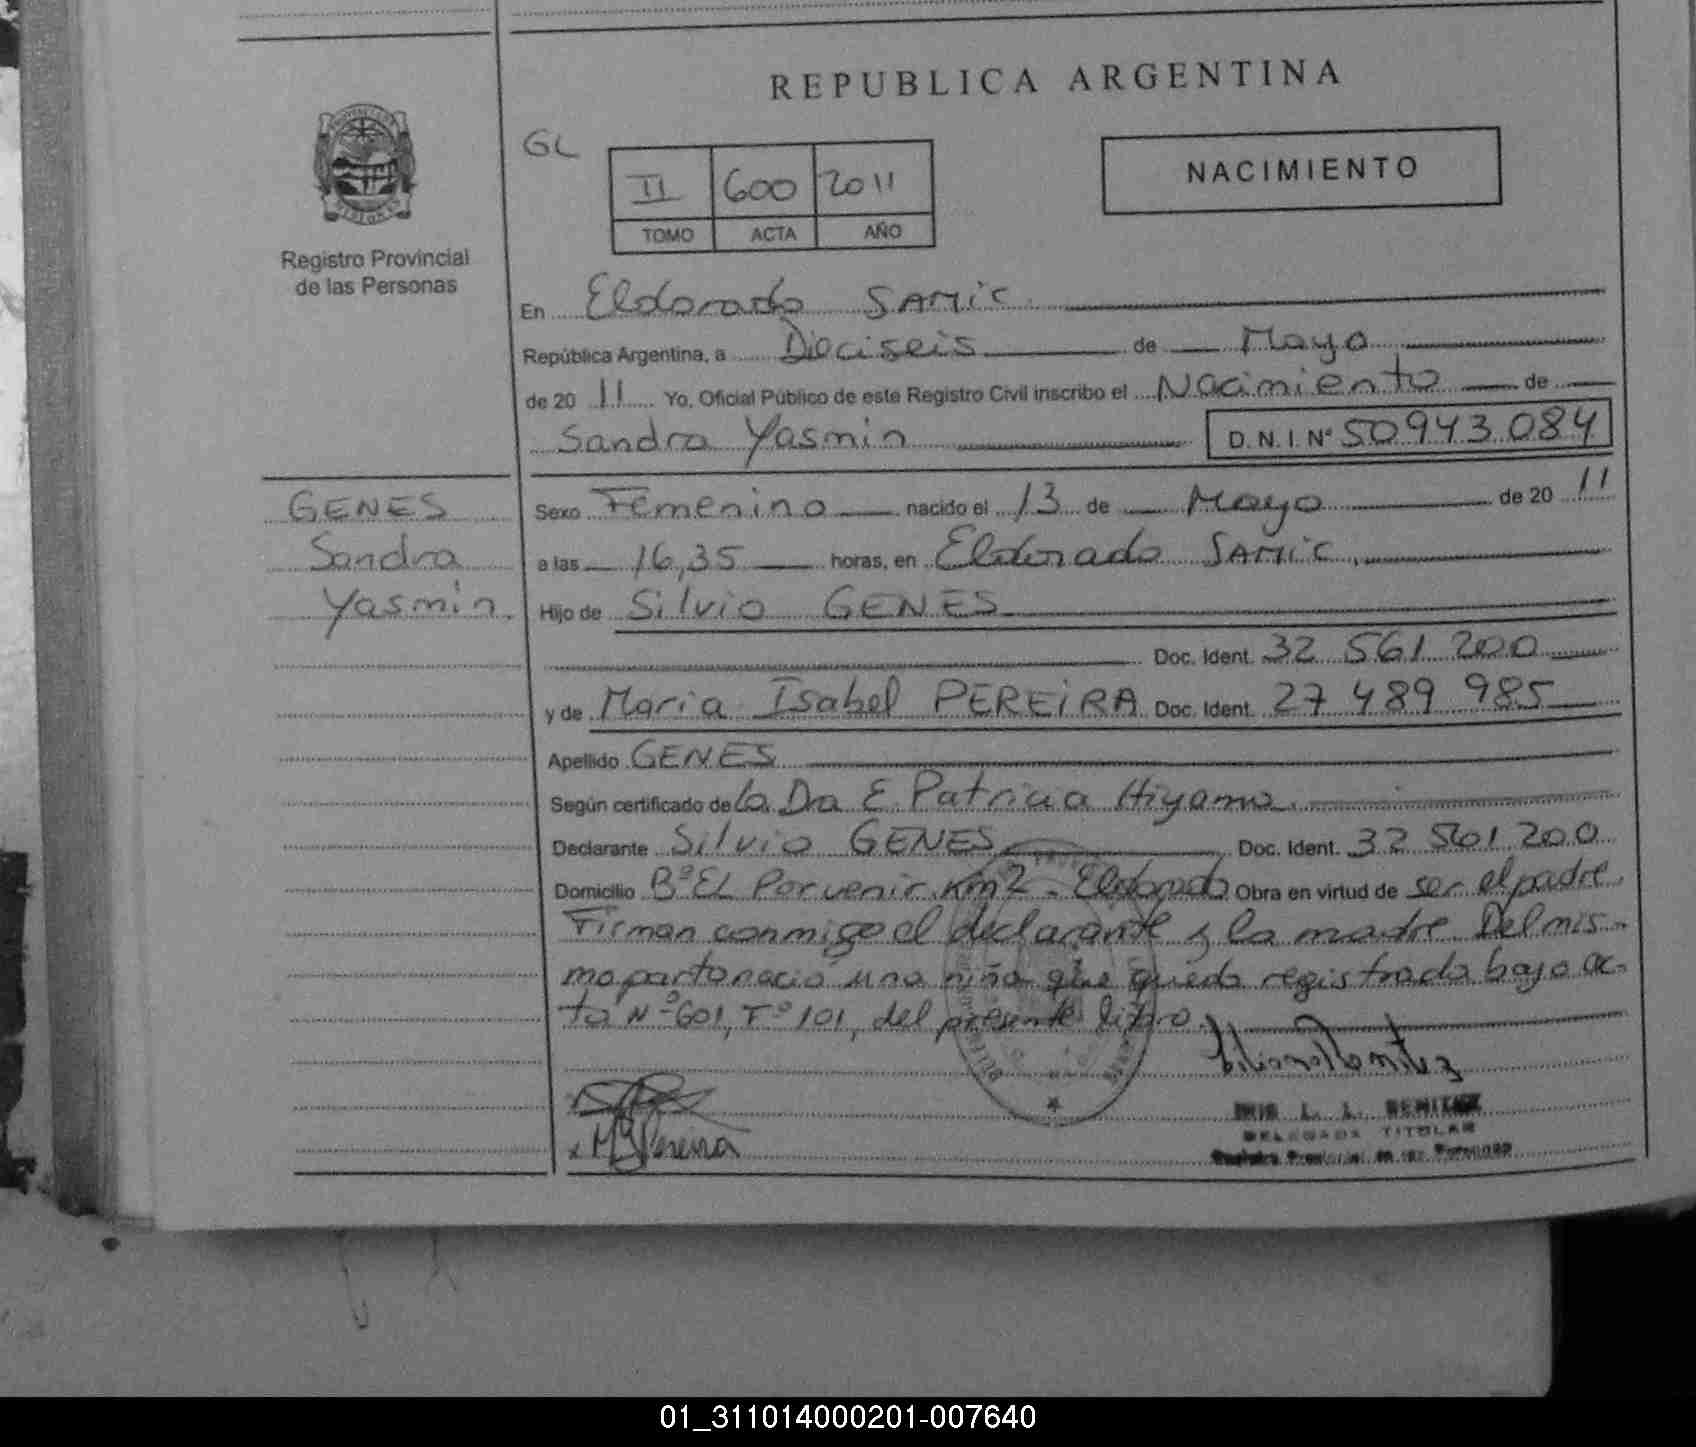 REPUBLICA ARGENTINA
GL
II 600 2011
TOMO ACTA AÑO
NACIMIENTO
Registro Provincial
de las Personas
En Eldorado SAMIC
República Argentina, a Dieciseis de Mayo
de 20 11 Yo, Oficial Público de este Registro Civil inscribo el Nacimiento de
Sandra Yasmin D.N.I. Nº 50943.084
GENES
Sandra
Yasmin
Sexo Femenino nacido el 13 de Mayo de 20 11
a las 16,35 horas, en Eldorado SAMIC,
Hijo de Silvio GENES
Doc. Ident. 32 561 200
y de Maria Isabel PEREIRA Doc. Ident. 27 489 985
Apellido GENES
Según certificado de la Dra E. Patricia Hiyama
Declarante Silvio GENES Doc. Ident. 32 561 200
Domicilio Bº EL Porvenir Km 2 - Eldorado Obra en virtud de ser el padre.
Firman conmigo el declarante y la madre. Del mis-
mo parto nació una niña que queda registrada bajo ac-
ta Nº 601, Tº 101, del presente libro.
x MYPereira
L. L. BENITEZ
DELEGADA TITULAR
Registro Provincial de las Personas
01_311014000201-007640